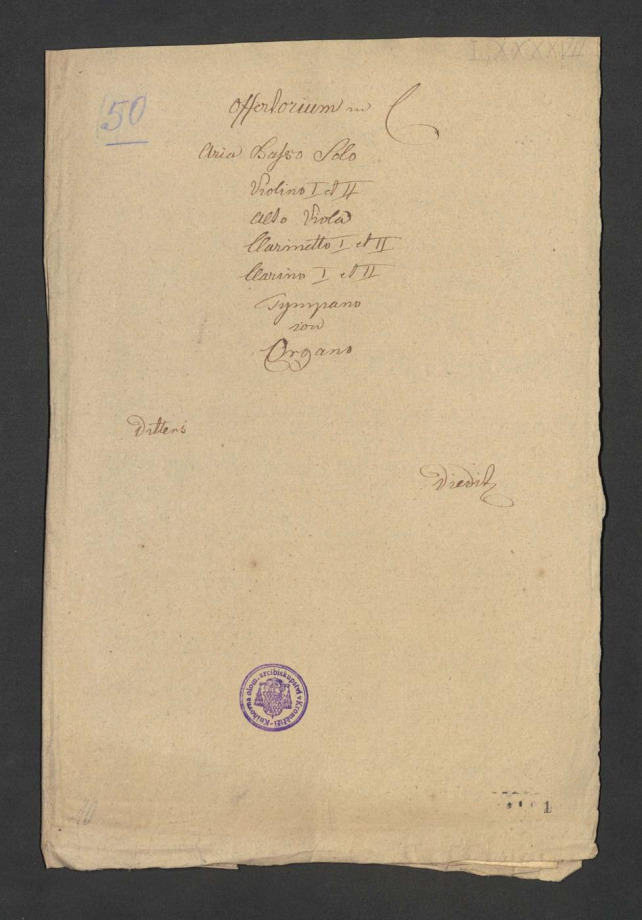 L,XXXXVII
50
Offertorium in C
Aria Basso Solo
Violino I et II
Alto Viola
Clarinetto I et II
Clarino I et II
Tympano
con
Organo
Ditters
Knihovna olom. arcibiskupství v Kroměříži
1